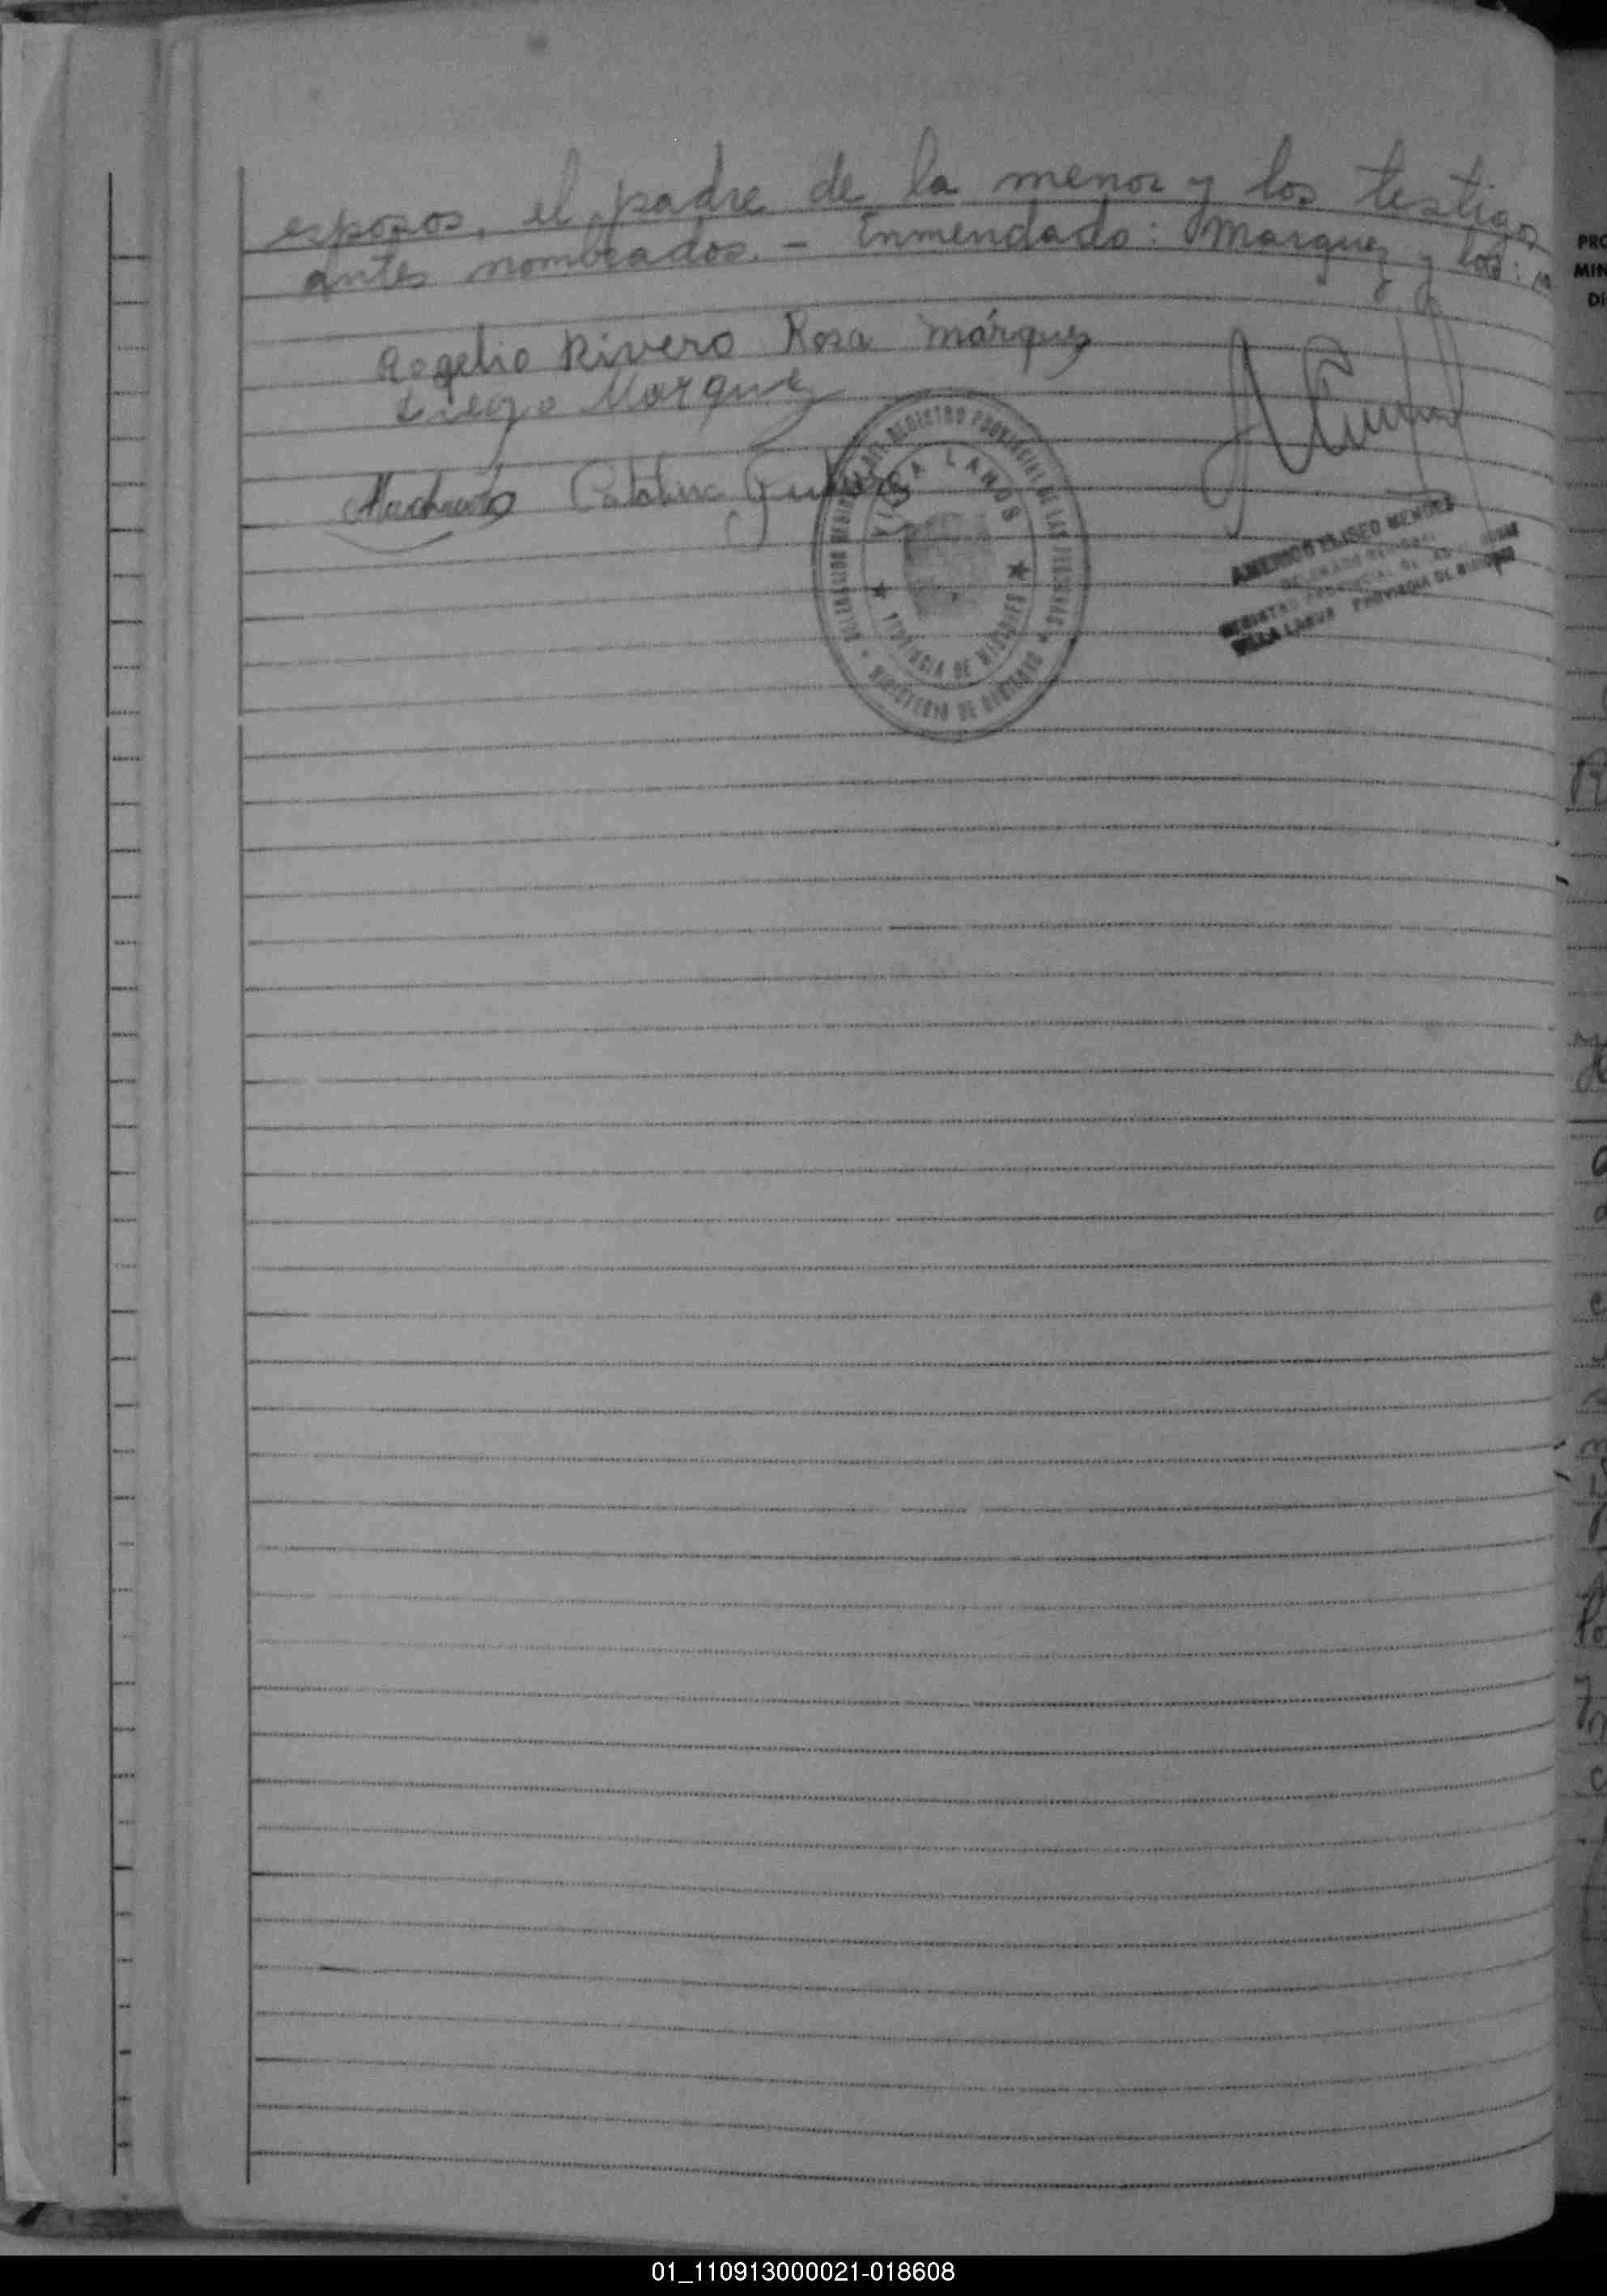 esposos, el padre de la menor y los testigos
antes nombrados. - Enmendado: Marquez y los:
Rogelio Rivero Rosa Márquez
Diego Marquez
Machado Catalina
DELEGACION DEL REGISTRO PROVINCIAL DE LAS PERSONAS
VILLA LANUS
PROVINCIA DE MISIONES
MINISTERIO DE GOBIERNO
AMERICO ELISEO MENDEZ
REGISTRO PROVINCIAL DE LAS
VILLA LANUS PROVINCIA DE MISIONES
PRO
MIN
DI
01_110913000021-018608